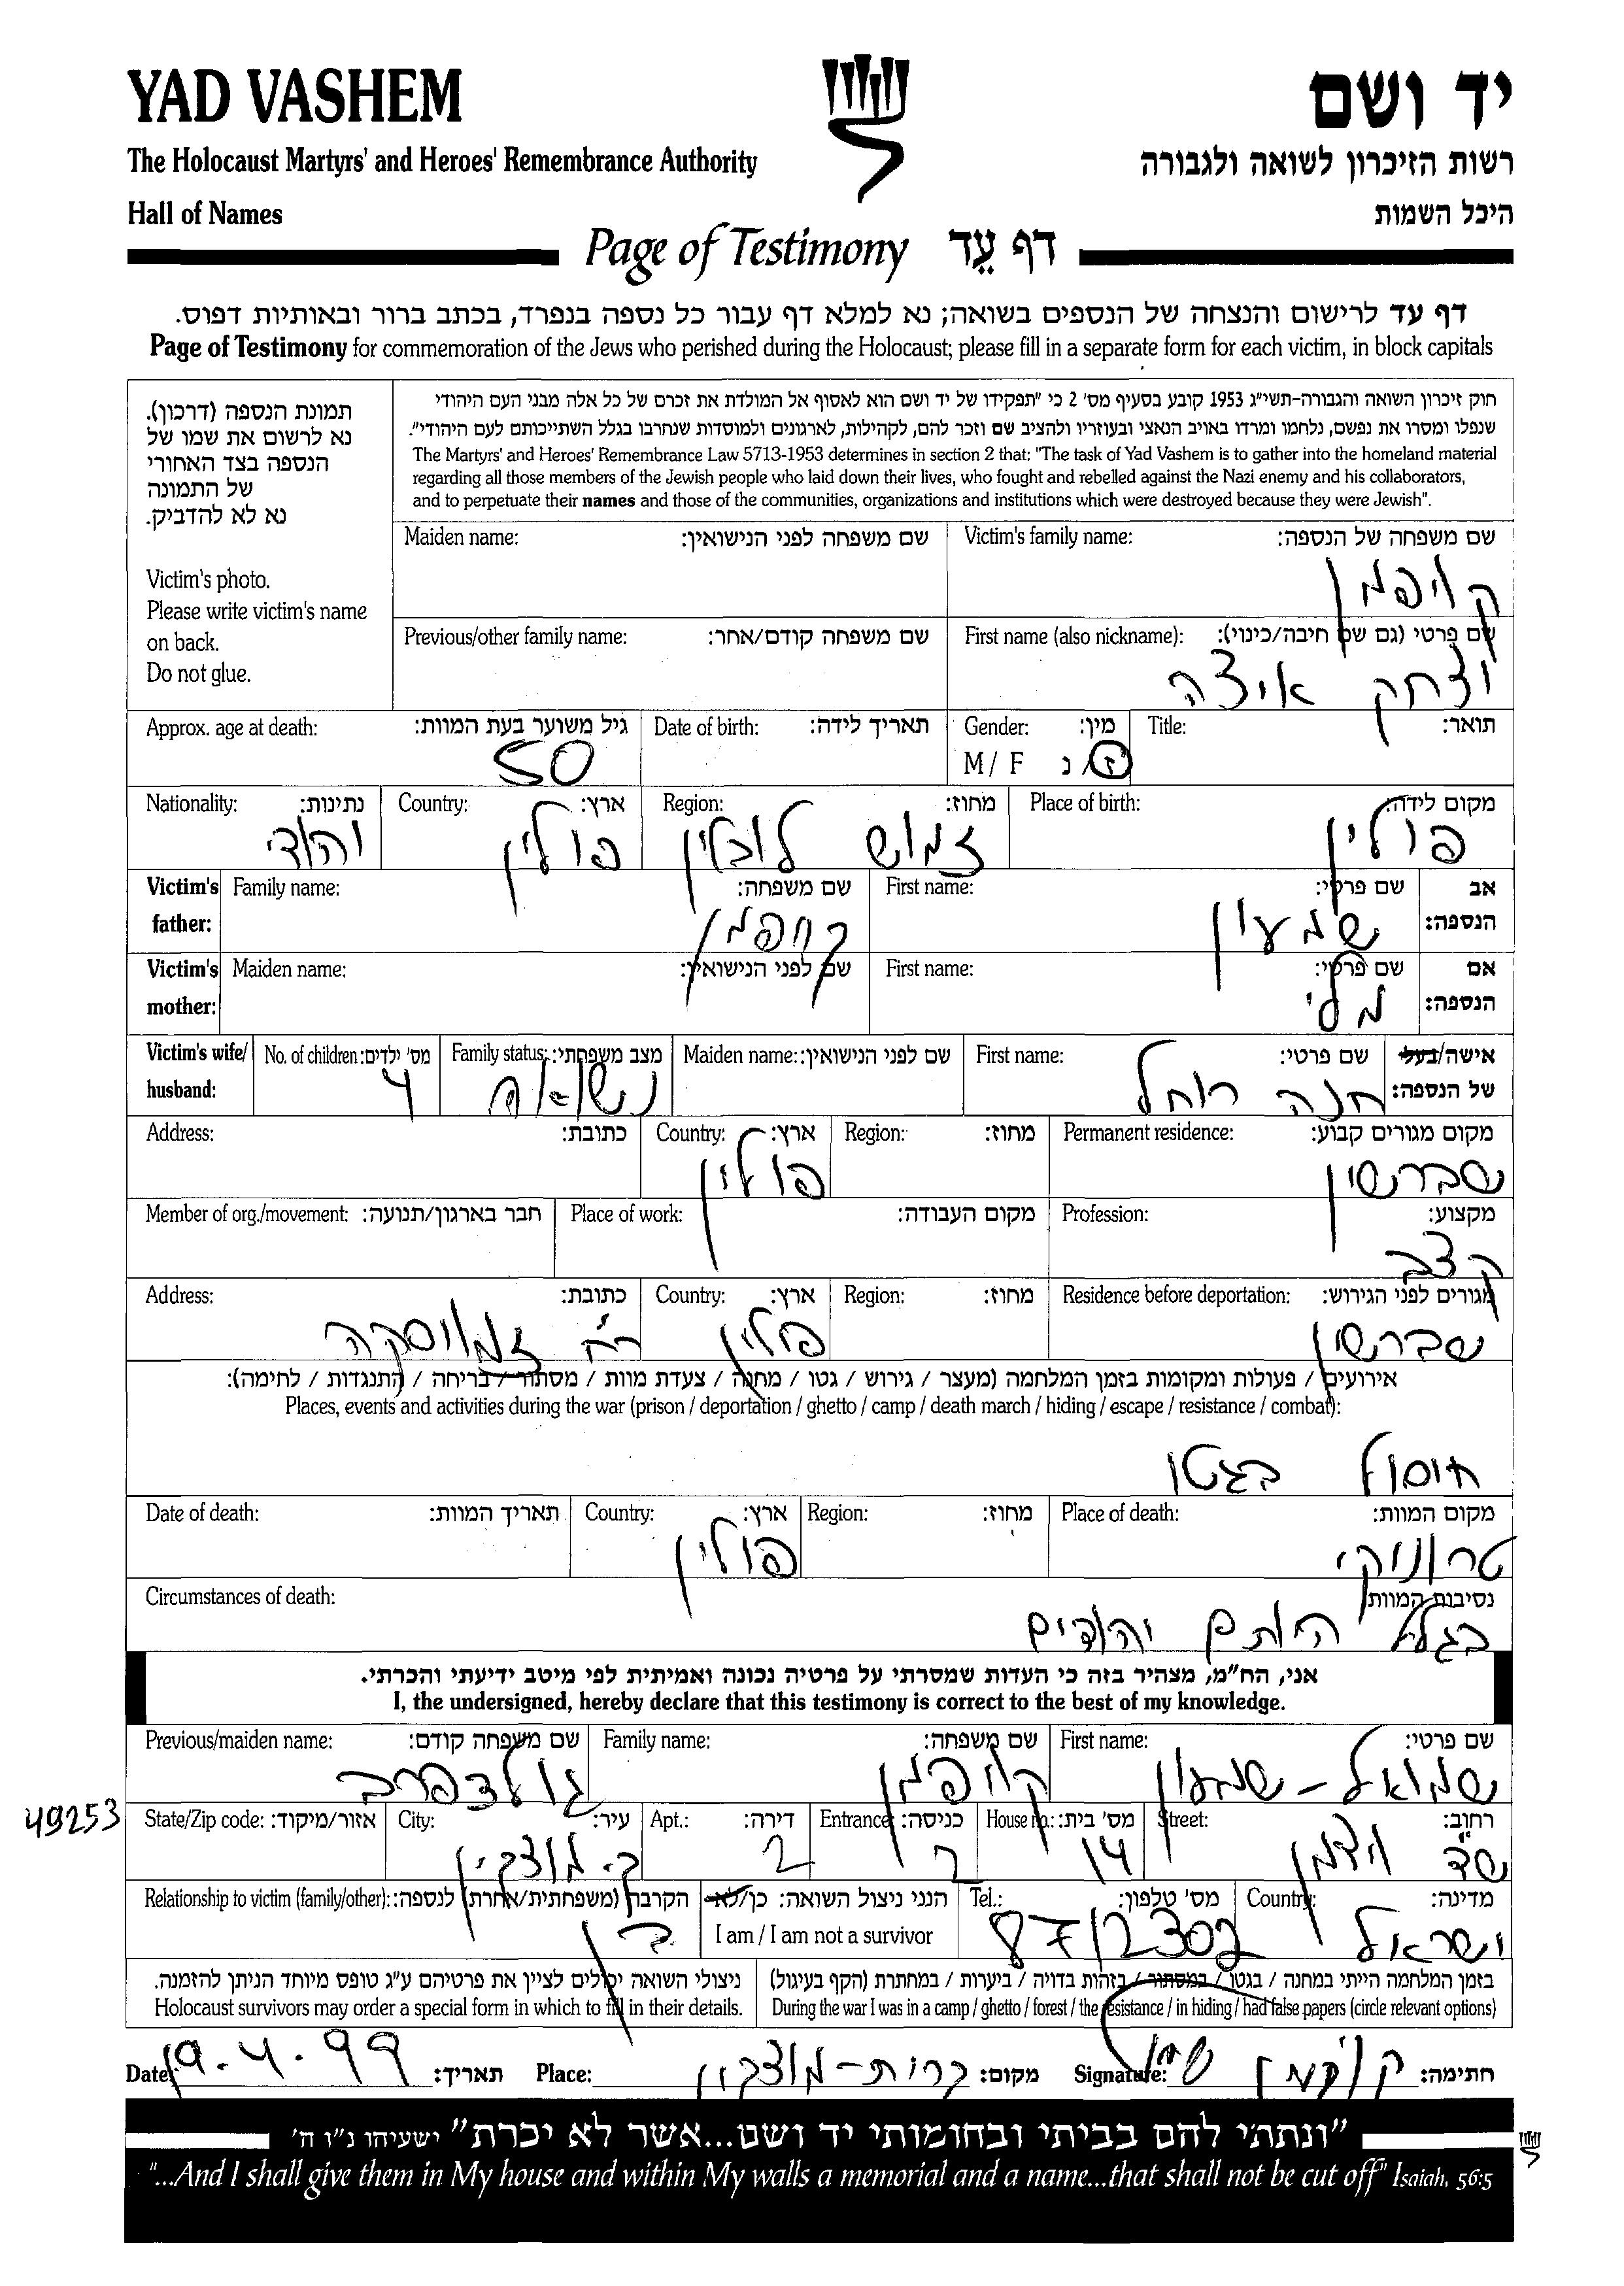 YAD VASHEM יד ושם
The Holocaust Martyrs' and Heroes' Remembrance Authority רשות הזיכרון לשואה ולגבורה
Hall of Names היכל השמות
Page of Testimony דף עֵד
דף עד לרישום והנצחה של הנספים בשואה; נא למלא דף עבור כל נספה בנפרד, בכתב ברור ובאותיות דפוס.
Page of Testimony for commemoration of the Jews who perished during the Holocaust; please fill in a separate form for each victim, in block capitals
תמונת הנספה (דרכון).
נא לרשום את שמו של
הנספה בצד האחורי
של התמונה
נא לא להדביק.
Victim's photo.
Please write victim's name
on back.
Do not glue.
חוק זיכרון השואה והגבורה-תשי"ג 1953 קובע בסעיף מס' 2 כי "תפקידו של יד ושם הוא לאסוף אל המולדת את זכרם של כל אלה מבני העם היהודי
שנפלו ומסרו את נפשם, נלחמו ומרדו באויב הנאצי ובעוזריו ולהציב שם וזכר להם, לקהילות, לארגונים ולמוסדות שנחרבו בגלל השתייכותם לעם היהודי".
The Martyrs' and Heroes' Remembrance Law 5713-1953 determines in section 2 that: "The task of Yad Vashem is to gather into the homeland material
regarding all those members of the Jewish people who laid down their lives, who fought and rebelled against the Nazi enemy and his collaborators,
and to perpetuate their names and those of the communities, organizations and institutions which were destroyed because they were Jewish".
Maiden name: שם משפחה לפני הנישואין: Victim's family name: שם משפחה של הנספה:
קויפמן
Previous/other family name: שם משפחה קודם/אחר: First name (also nickname): שם פרטי (גם שם חיבה/כינוי):
יצחק איצה
Approx. age at death: גיל משוער בעת המוות: Date of birth: תאריך לידה: Gender: מין: Title: תואר:
50 M/ F ז/נ
Nationality: נתינות: Country: ארץ: Region: מחוז: Place of birth: מקום לידה:
יהודי פולין זמוש לובלין פולין
Victim's father: Family name: שם משפחה: First name: שם פרטי: אב הנספה:
קויפמן שמעון
Victim's mother: Maiden name: שם לפני הנישואין: First name: שם פרטי: אם הנספה:
מלי
Victim's wife/ husband: No. of children: מס' ילדים: Family status: מצב משפחתי: Maiden name: שם לפני הנישואין: First name: שם פרטי: אישה/בעל של הנספה:
4 נשוא חנה רוחל
Address: כתובת: Country: ארץ: Region: מחוז: Permanent residence: מקום מגורים קבוע:
פולין שברשין
Member of org./movement: חבר בארגון/תנועה: Place of work: מקום העבודה: Profession: מקצוע:
קצב
Address: כתובת: Country: ארץ: Region: מחוז: Residence before deportation: מגורים לפני הגירוש:
רח' זמוסקה פולין שברשין
אירועים / פעולות ומקומות בזמן המלחמה (מעצר / גירוש / גטו / מחנה / צעדת מוות / מסתור / בריחה / התנגדות / לחימה):
Places, events and activities during the war (prison / deportation / ghetto / camp / death march / hiding / escape / resistance / combat):
חוסל בגטו
Date of death: תאריך המוות: Country: ארץ: Region: מחוז: Place of death: מקום המוות:
פולין
Circumstances of death: נסיבות המוות:
בגלל היותם יהודים
אני, הח"מ, מצהיר בזה כי העדות שמסרתי על פרטיה נכונה ואמיתית לפי מיטב ידיעתי והכרתי.
I, the undersigned, hereby declare that this testimony is correct to the best of my knowledge.
Previous/maiden name: שם משפחה קודם: Family name: שם משפחה: First name: שם פרטי:
גולדפרב קויפמן שמואל-שמעון
49253 State/Zip code: אזור/מיקוד: City: עיר: Apt.: דירה: Entrance: כניסה: House no.: מס' בית: Street: רחוב:
ק. מוצקין 2 14 שד' ויצמן
Relationship to victim (family/other): הקרבה (משפחתית/אחרת) לנספה: הנני ניצול השואה: כן/לא Tel.: מס' טלפון: Country: מדינה:
בן I am / I am not a survivor 8712302 ישראל
ניצולי השואה יכולים לציין את פרטיהם ע"ג טופס מיוחד הניתן להזמנה. בזמן המלחמה הייתי במחנה / בגטו / במסתור / בזהות בדויה / ביערות / במחתרת (הקף בעיגול)
Holocaust survivors may order a special form in which to fill in their details. During the war I was in a camp / ghetto / forest / the resistance / in hiding / had false papers (circle relevant options)
Date: 19.4.99 תאריך: Place: קרית-מוצקין מקום: Signature: קויפמן חתימה:
"ונתתי להם בביתי ובחומותי יד ושם...אשר לא יכרת" ישעיהו נ"ו ה'
"...And I shall give them in My house and within My walls a memorial and a name...that shall not be cut off" Isaiah, 56:5